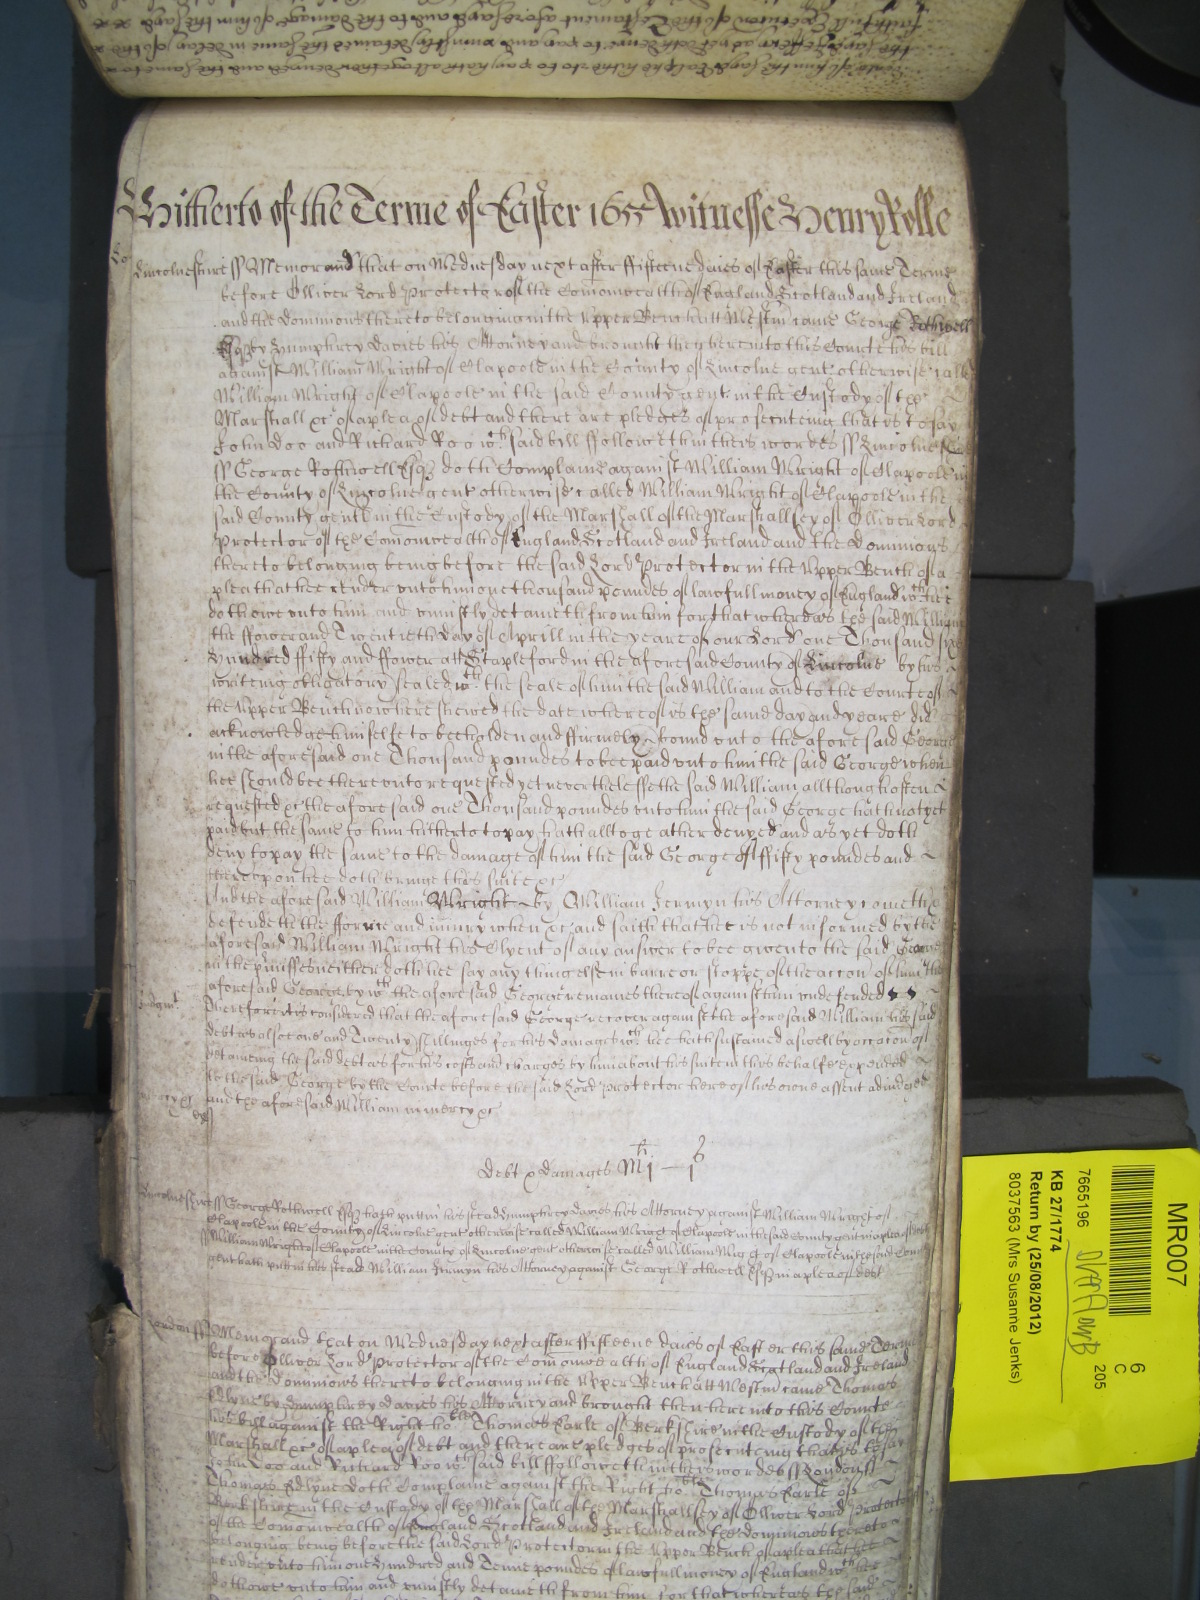 Hitherto of the Terme of Easter 1655 Witnesse Henry Rolle
Lincolneshire ss Memorand that on Wednesday next after ffifteene daies of Easter this same Terme
before Olliver Lord Protector of the Comonwealth of England Scotland and Ireland
and the dominions thereto belonging in the Upper Bench att Westm came George Rothwell
Esqr by Humphrey davies his Attorney and brought then here into this Courte his bill
against William Wright of Claipoole in the County of Lincolne gent otherwise called
William Wright of Claipoole in the said County gent in the Custody of the
Marshall &c of a plea of debt and there are pledges of prosecuteing that is to say
John Doo and Richard Roo wch said bill ffolloweth in theis wordes ss Lincolne
ss George Rothwell Esqr doth Complaine against William Wright of Claipoole in
the County of Lincolne gent otherwise called William Wright of Claipoole in the
said County gent in the Custody of the Marshall of the Marshallsey of Olliver Lord
Protector of the Comonwealth of England Scotland and Ireland and the dominions
thereto belonging being before the said Lord Protector in the Upper Bench of a
plea that hee render unto him one thousand poundes of lawfull money of England wch hee
doth owe unto him and uniustly detaineth from him for that whereas the said William
the ffower and Twentieth day of Aprill in the yeare of our Lord one Thousand six
Hundred ffifty and ffower att Stapleford in the aforesaid County of Lincolne by his
writeing obligatory sealed wth the seale of him the said William and to the Courte of
the Upper Bench now here shewed the date whereof is the same day and yeare did
acknowledge himselfe to bee holden and ffirmely bound unto the aforesaid George
in the aforesaid one Thousand poundes to bee paid unto him the said George when
hee should bee thereunto requested yet neverthelesse the said William allthough often
requested &c the aforesaid one Thousand poundes unto him the said George hath not yet
paid but the same to him hitherto to pay hath alltogeather denyed and as yet doth
deny to pay the same to the damage of him the said George of ffifty poundes and
thereupon hee doth bringe this suite &c
And the aforesaid William Wright by William Jermyn his Attorney cometh
defendeth the fforce and iniury when &c and saith that hee is not informed by the
aforesaid William Wright his Clyent of any answer to bee given to the said George
in the p'misses neither doth hee say any thing else in barre or stoppe of the accon of him the
aforesaid George by wch the aforesaid George remaines thereof against him undefended
Judgmt Therefore it is considered that the aforesaid George recover against the aforesaid William his said
debt as also one and Twenty shillinges for his damages wch hee hath sustained aswell by occacon of
detaineing the said debt as for his costs and charges by him about his suite in this behalfe expended
to the said George by the Courte before the said Lord Protector here of his owne assent adiudged
mercy &c and the aforesaid William in mercy &c
Debt & damages
Lincolneshire ss George Rothwell Esqr hath put in his stead Humphrey davies his Attorney against William Wright of
Claipoole in the County of Lincolne gent otherwise called William Wright of Claipoole in the said County gent in a plea of debt
ss William Wright of Claipoole in the County of Lincolne gent otherwise called William Wright of Claipoole in the said County
gent hath put in his stead William Jermyn his Attorney against George Rothwell Esqr in a plea of debt
London ss Memorand that on Wednesday next after ffifteene daies of Easter this same Terme
before Olliver Lord Protector of the Comonwealth of England Scotland and Ireland
and the dominions thereto belonging in the Upper Bench att Westm came Thomas
Edlyne by Humphrey davies his Attorney and brought then here into this Courte
his bill against the Right hoble Thomas Earle of Berkshire in the Custody of the
Marshall &c of a plea of debt and there are pledges of prosecuteing that is to say
John Doo and Richard Roo wch said bill ffolloweth in theis wordes ss London ss
Thomas Edlyne doth Complaine against the Right hoble Thomas Earle of
Berkshire in the Custody of the Marshall of the Marshallsey of Olliver Lord Protector
of the Comonwealth of England Scotland and Ireland and the dominions thereto
belonging being before the said Lord Protector in the Upper Bench of a plea that hee
render unto him one Hundred and Tenne poundes of lawfull money of England wch hee
doth owe unto him and uniustly detaineth from him for that whereas the said
MR007
6
C
205
7665196
KB 27/1774
Return by (25/08/2012)
8037563 (Mrs Susanne Jenks)